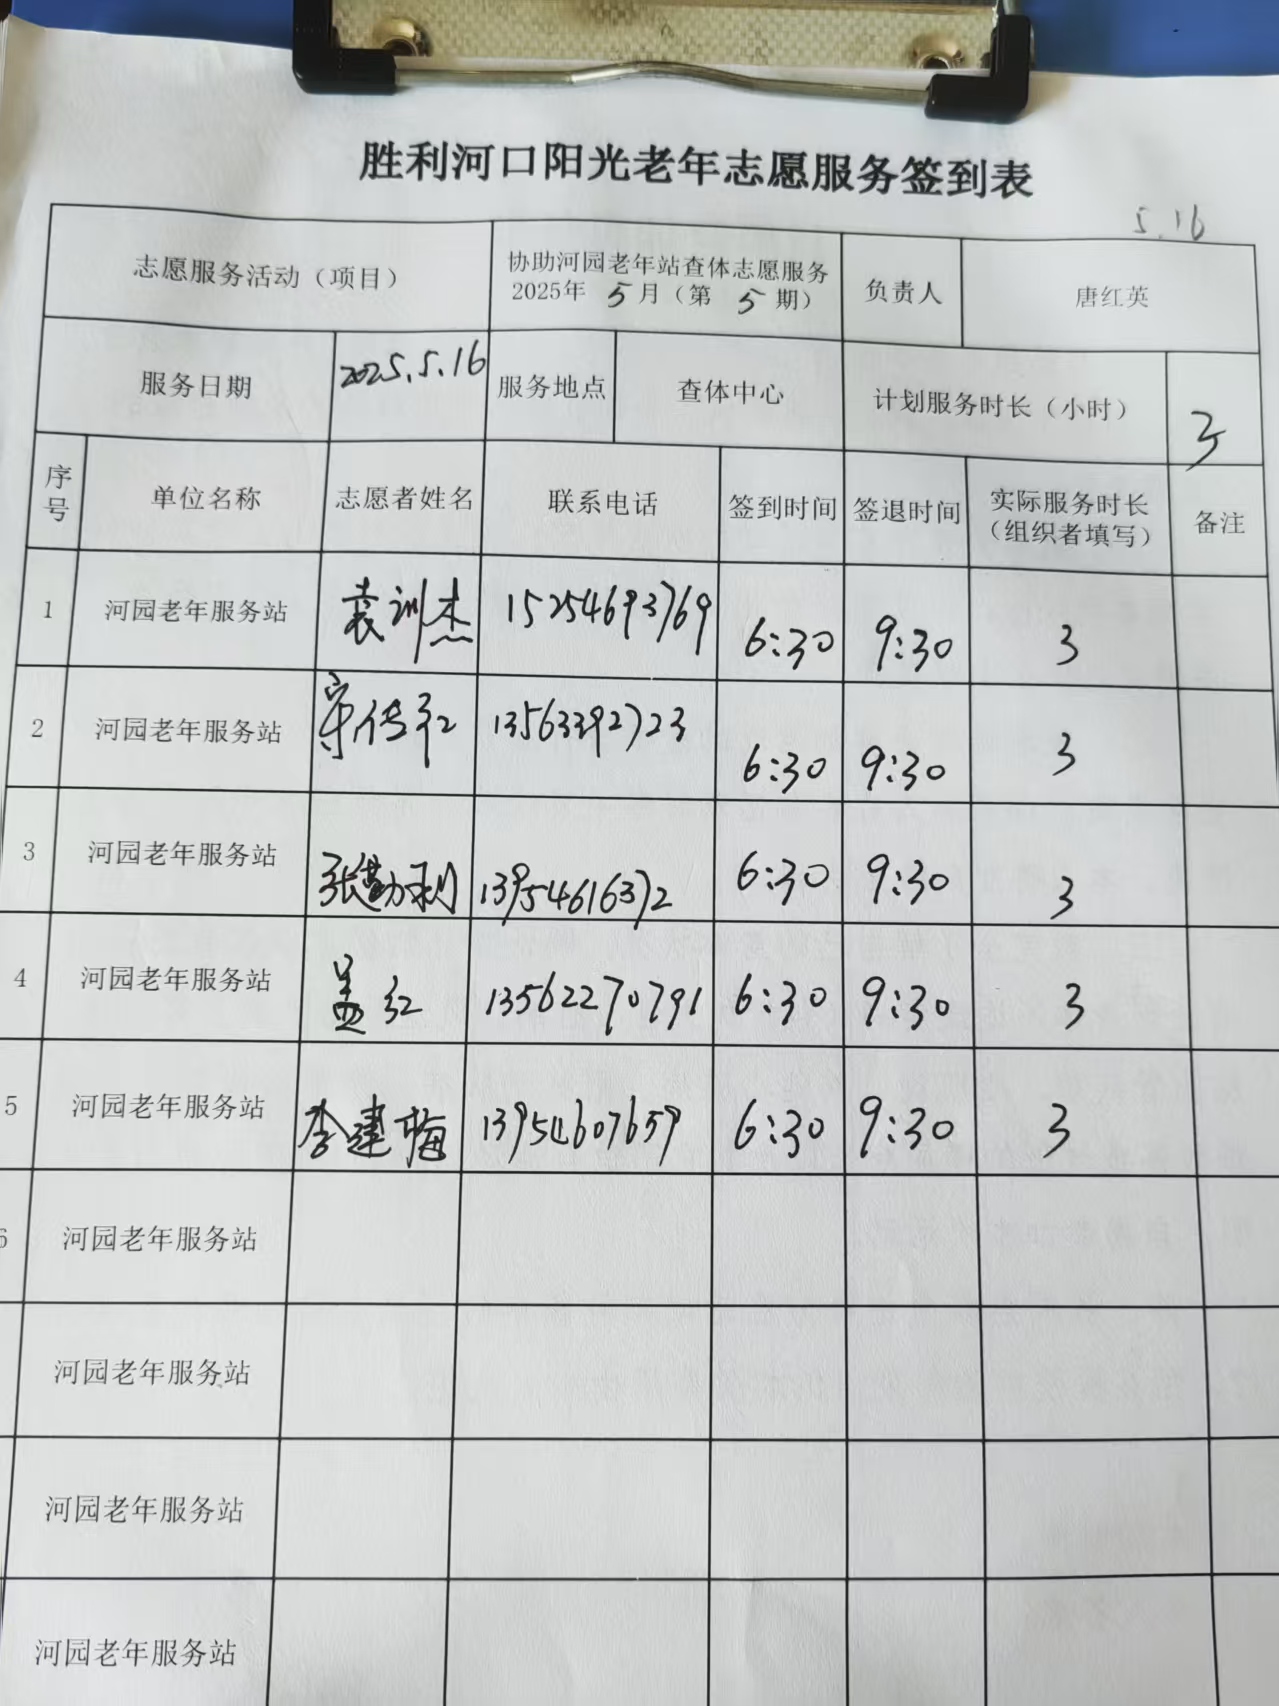 胜利河口阳光老年志愿服务签到表
5.16
志愿服务活动（项目） 协助河园老年站查体志愿服务 2025年 5月（第 5 期） 负责人 唐红英
服务日期 2025.5.16 服务地点 查体中心 计划服务时长（小时） 3
序号 单位名称 志愿者姓名 联系电话 签到时间 签退时间 实际服务时长（组织者填写） 备注
1 河园老年服务站 袁训杰 15254693769 6:30 9:30 3
2 河园老年服务站 13563392723 6:30 9:30 3
3 河园老年服务站 张勤利 13954616372 6:30 9:30 3
4 河园老年服务站 盖红 13562270791 6:30 9:30 3
5 河园老年服务站 李建梅 13954607659 6:30 9:30 3
6 河园老年服务站
河园老年服务站
河园老年服务站
河园老年服务站